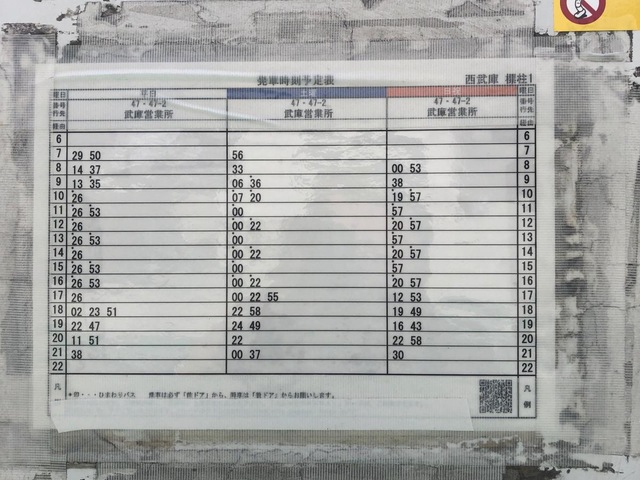 発車時刻予定表 西武庫 標柱1
曜日 平日 土曜 日祝 曜日
番号 47・47-2 47・47-2 47・47-2 番号
行先 武庫営業所 武庫営業所 武庫営業所 行先
経由 経由
6 6
7 29 50 56 7
8 14 37 33 00 53 8
9 13 35 06 36 38 9
10 26 07 20 19 57 10
11 26 53 00 57 11
12 26 00 22 20 57 12
13 26 53 00 57 13
14 26 00 22 20 57 14
15 26 53 00 57 15
16 26 53 00 22 20 57 16
17 26 00 22 55 12 53 17
18 02 23 51 22 58 19 49 18
19 22 47 24 49 16 43 19
20 11 51 22 22 58 20
21 38 00 37 30 21
22 22
凡 *印・・・ひまわりバス 乗車は必ず「後ドア」から、降車は「前ドア」からお願いします。 凡例